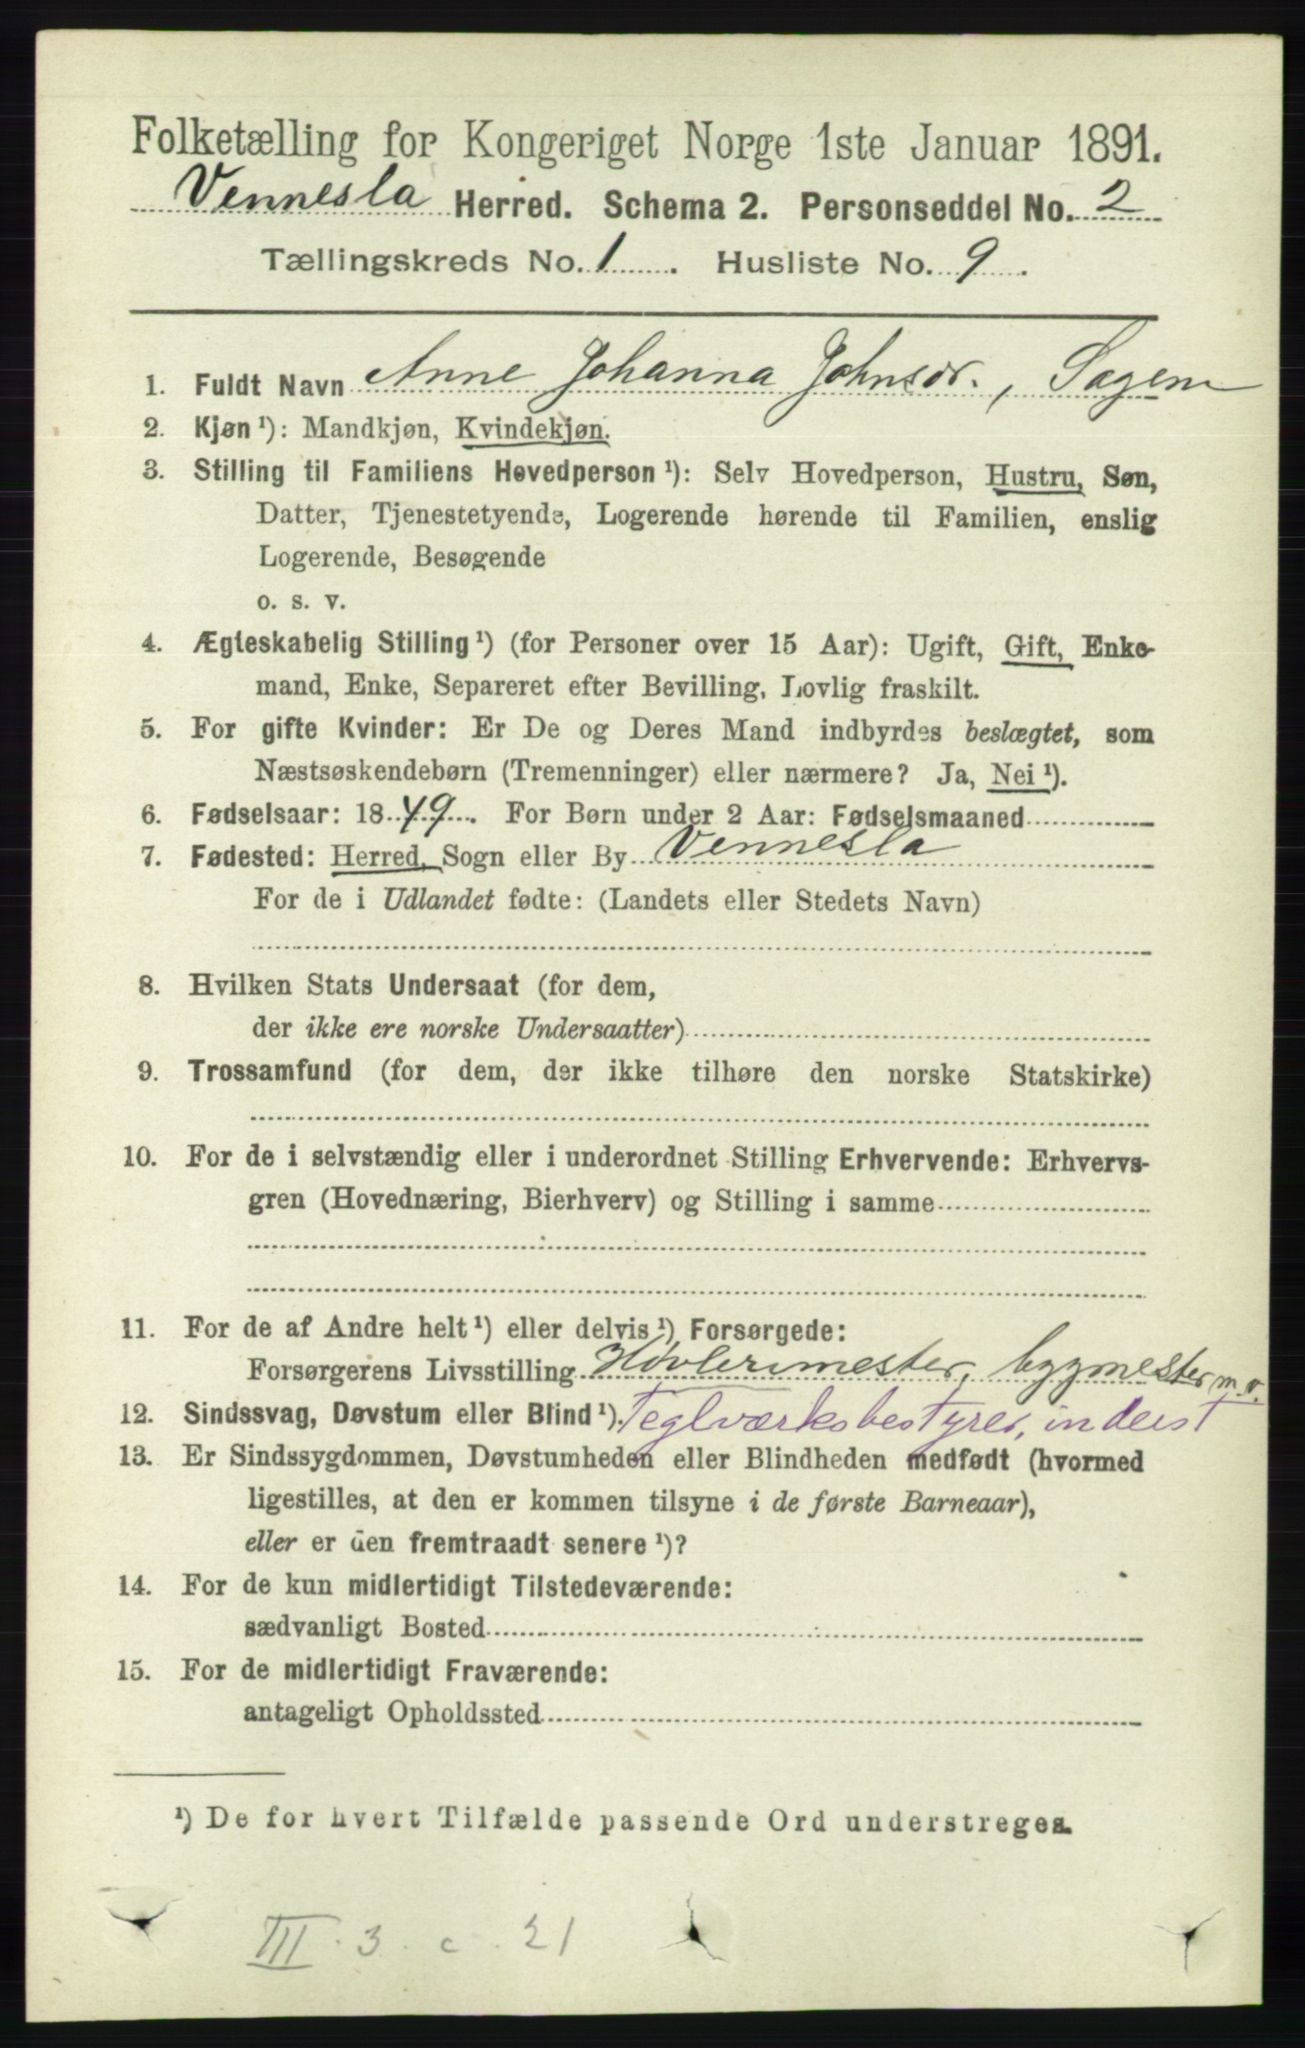 Folketælling for Kongeriget Norge 1ste Januar 1891.
Vennesla Herred. Schema 2. Personseddel No. 2
Tællingskreds No. 1. Husliste No. 9.
1. Fuldt Navn Anne Johanna Johnsdr., Sagen
2. Kjøn ¹): Mandkjøn, Kvindekjøn.
3. Stilling til Familiens Hovedperson ¹): Selv Hovedperson, Hustru, Søn,
Datter, Tjenestetyende, Logerende hørende til Familien, enslig
Logerende, Besøgende
o. s. v.
4. Ægteskabelig Stilling ¹) (for Personer over 15 Aar): Ugift, Gift, Enke-
mand, Enke, Separeret efter Bevilling, Lovlig fraskilt.
5. For gifte Kvinder: Er De og Deres Mand indbyrdes beslægtet, som
Næstsøskendebørn (Tremenninger) eller nærmere? Ja, Nei ¹).
6. Fødselsaar: 1849. For Børn under 2 Aar: Fødselsmaaned
7. Fødested: Herred, Sogn eller By Vennesla
For de i Udlandet fødte: (Landets eller Stedets Navn)
8. Hvilken Stats Undersaat (for dem,
der ikke ere norske Undersaatter)
9. Trossamfund (for dem, der ikke tilhøre den norske Statskirke)
10. For de i selvstændig eller i underordnet Stilling Erhvervende: Erhvervs-
gren (Hovednæring, Bierhverv) og Stilling i samme
11. For de af Andre helt ¹) eller delvis ¹) Forsørgede:
Forsørgerens Livsstilling Høvlerimester, bygmester m. v.
12. Sindssvag, Døvstum eller Blind ¹). Teglværksbestyrer, inderst
13. Er Sindssygdommen, Døvstumheden eller Blindheden medfødt (hvormed
ligestilles, at den er kommen tilsyne i de første Barneaar),
eller er den fremtraadt senere ¹)?
14. For de kun midlertidigt Tilstedeværende:
sædvanligt Bosted
15. For de midlertidigt Fraværende:
antageligt Opholdssted
¹) De for hvert Tilfælde passende Ord understreges.
III. 3. c. 21